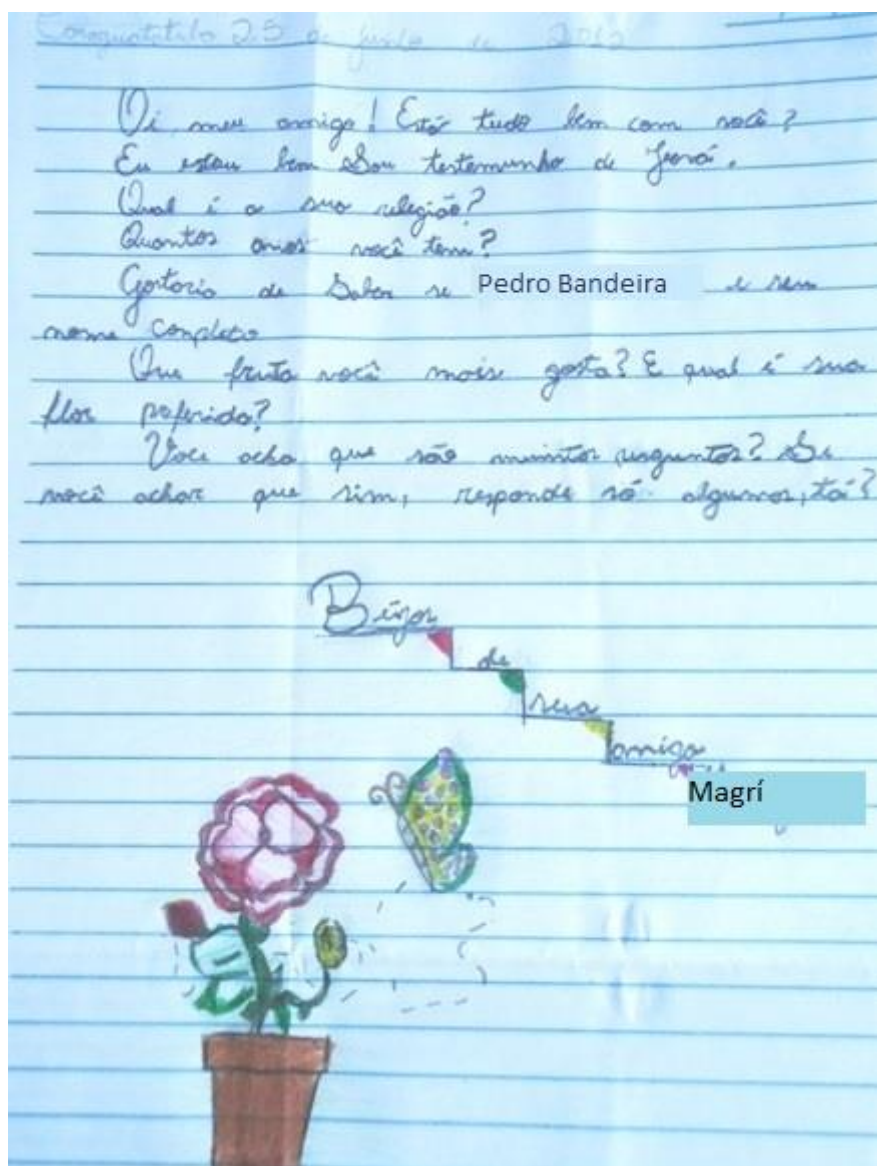 Caraguatatuba 25 de junho de 2012
Oi, meu amigo! Está tudo bem com você?
Eu estou bem Sou testemunha de Jeová.
Qual é a sua religião?
Quantos anos você tem?
Gostaria de Saber se Pedro Bandeira é seu
nome completo
Que fruta você mais gosta? E qual é sua
flor preferida?
Você acha que são muintas perguntas? Se
você achar que sim, responde só algumas, tá?
Beijos
de
sua
amiga
Magrí